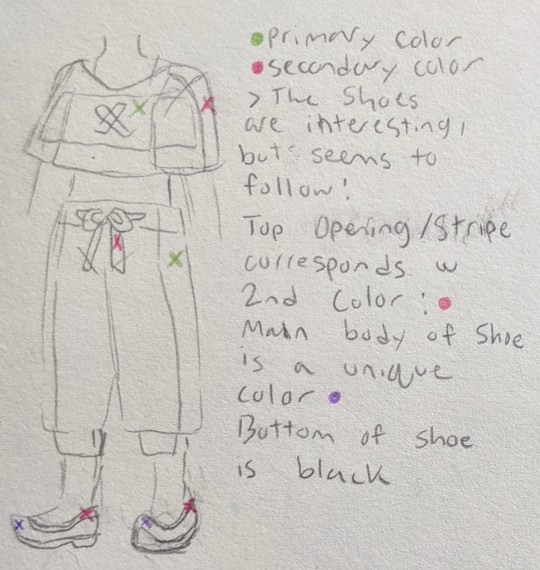 primary color
secondary color
> The Shoes
are interesting,
but seems to
follow!
Top Opening/Stripe
curresponds w
2nd Color:
Main body of Shoe
is a unique
color
Buttom of shoe
is black